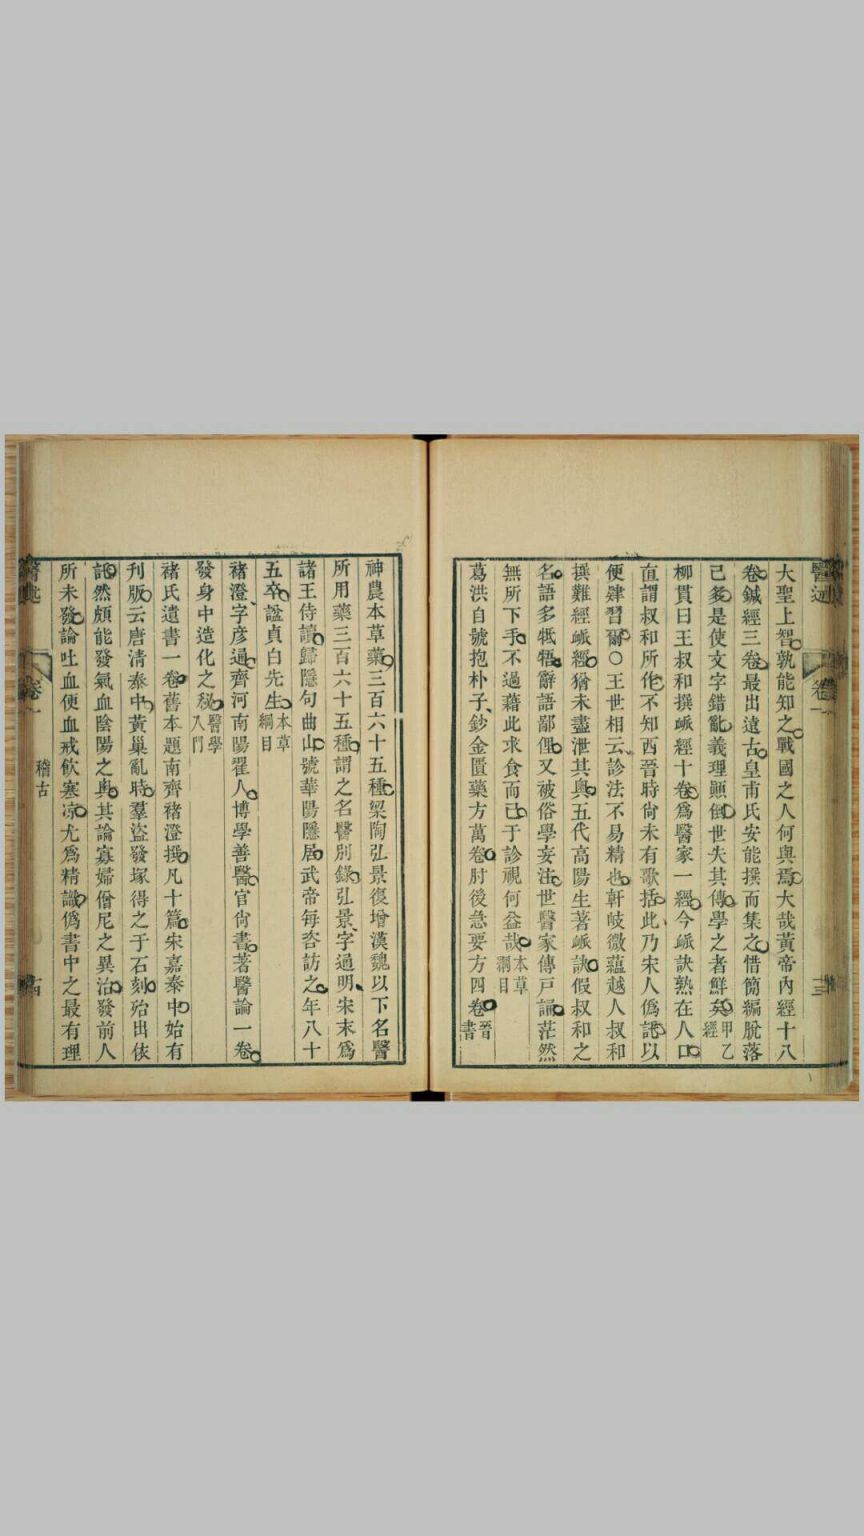 大聖上智孰能知之戰國之人何與焉大哉黃帝內經十八
卷鍼經三卷最出遠古皇甫氏安能撰而集之惜簡編脫落
已䆮是使文字錯亂義理顚倒世失其傳學之者鮮矣甲乙
經
柳貫曰王叔和撰脈經十卷爲醫家一經今脈訣熟在人口
直謂叔和所作不知西晉時尙未有歌括此乃宋人僞託以
便肄習爾○王世相云診法不易精也軒岐微蘊越人叔和
撰難經脈經猶未盡泄其奥五代高陽生著脈訣假叔和之
名語多牴牾辭語鄙俚又被俗學妄注世醫家傳戸誦茫然
無所下手不過藉此求食而已于診視何益哉本草
綱目
葛洪自號抱朴子鈔金匱藥方萬卷肘後急要方四卷晉
書
醫述
卷一
十三
神農本草藥三百六十五種梁陶弘景復增漢魏以下名醫
所用藥三百六十五種謂之名醫別錄弘景字通明宋末爲
諸王侍讀歸隱句曲山號華陽隱居武帝每咨訪之年八十
五卒諡貞白先生本草
綱目
褚澄字彥通齊河南陽翟人博學善醫官尙書著醫論一卷
發身中造化之秘醫學
入門
褚氏遺書一卷舊本題南齊褚澄撰凡十篇宋嘉泰中始有
刊版云唐清泰中黃巢亂時羣盜發塚得之于石刻殆出依
託然頗能發氣血陰陽之奥其論寡婦僧尼之異治發前人
所未發論吐血便血戒飲寒凉尤爲精識僞書中之最有理
醫述
卷一
稽古
十四